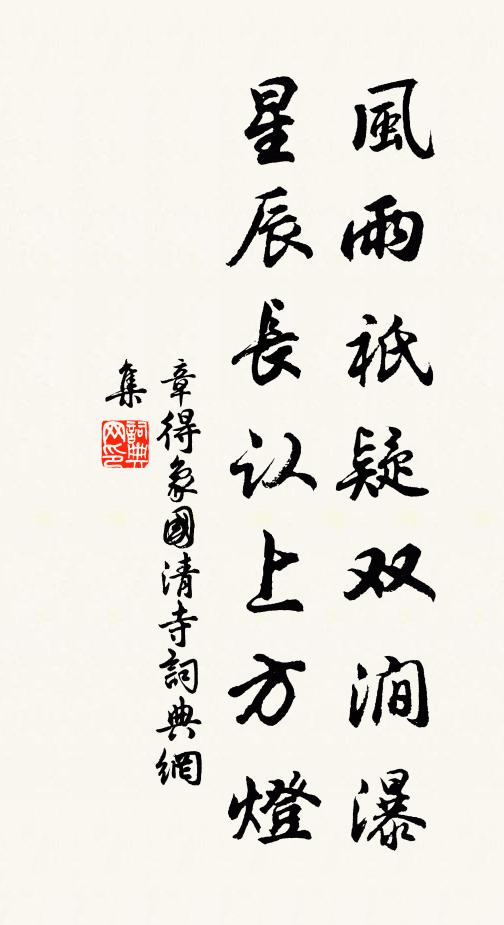 風雨祇疑双澗瀑
星辰長认上方燈
章得象國清寺詞典網
集
詞典
网印